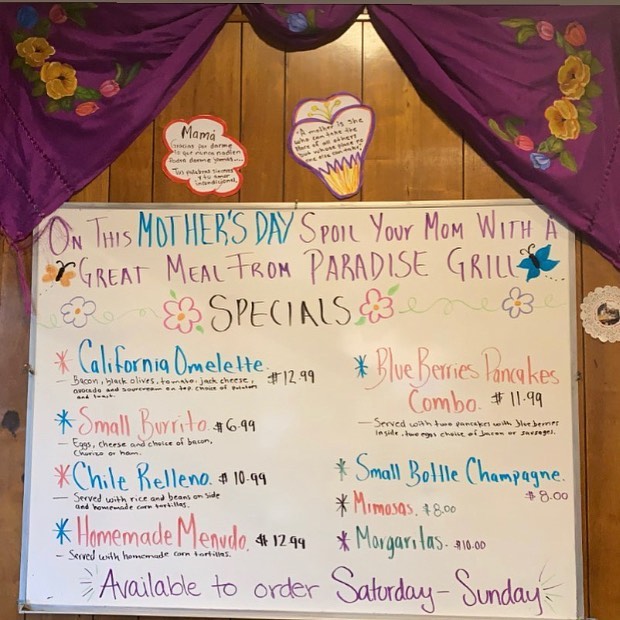 Mamá
Gracias por darme
lo que nunca nadien
Podra darme jamas....
Tus palabras sinceras
y tu amor
incondicional.
"A mother is she
who can take the
place of all others
but whose place no
one else can take."
On This MOTHER'S DAY Spoil Your Mom With A
Great Meal From PARADISE GRILL
SPECIALS
* California Omelette. $12.99
- Bacon, black olives, tomato, jack cheese,
avocado and sourcream on top choice of potatoes
and toast.
* Small Burrito. $6.99
- Eggs, cheese and choice of bacon,
Chorizo or ham.
* Chile Relleno. $10.99
- Served with rice and beans on side
and homemade corn tortillas.
* Homemade Menudo. $12.99
- Served with homemade corn tortillas.
* Blue Berries Pancakes
Combo. $11.99
- Served with two pancakes with blueberries
inside, two eggs choice of bacon or sausages.
* Small Bottle Champagne.
$8.00
* Mimosas. $8.00
* Margaritas. $10.00
Available to order Saturday - Sunday